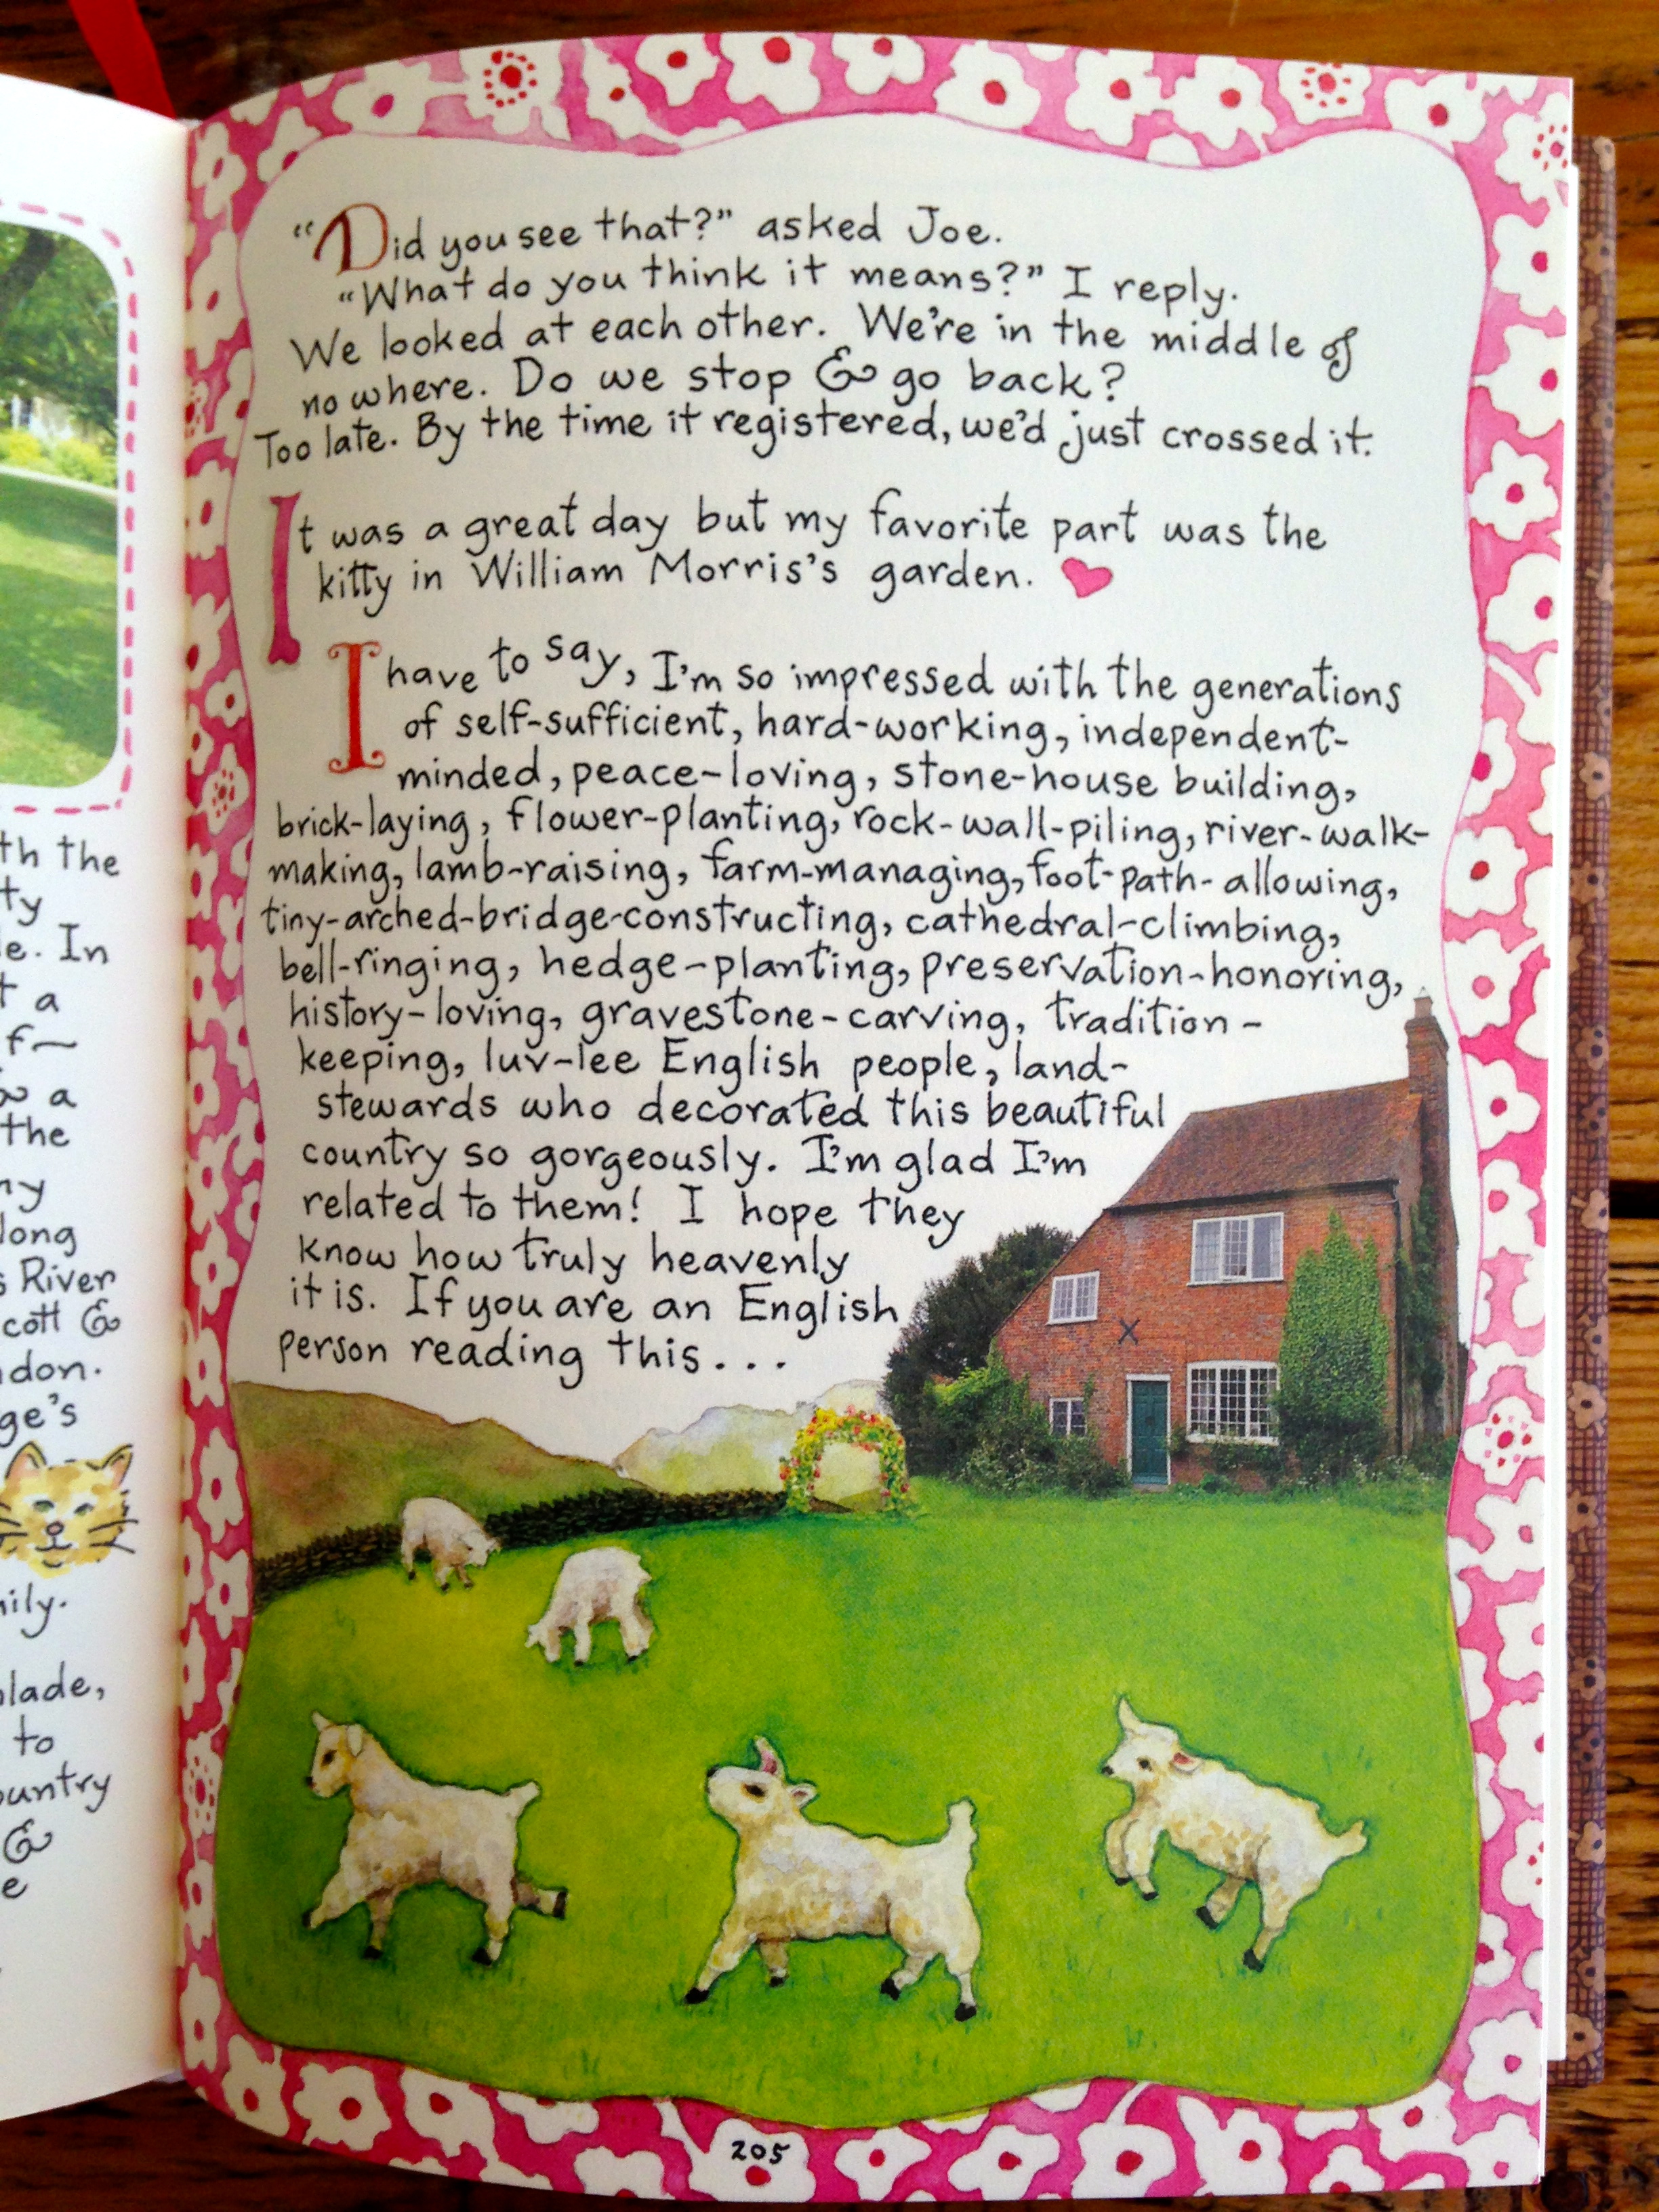 "Did you see that?" asked Joe.
"What do you think it means?" I reply.
We looked at each other. We're in the middle of
nowhere. Do we stop & go back?
Too late. By the time it registered, we'd just crossed it.
It was a great day but my favorite part was the
kitty in William Morris's garden.
I have to say, I'm so impressed with the generations
of self-sufficient, hard-working, independent-
minded, peace-loving, stone-house building,
brick-laying, flower-planting, rock-wall-piling, river-walk-
making, lamb-raising, farm-managing, foot-path-allowing,
tiny-arched-bridge-constructing, cathedral-climbing,
bell-ringing, hedge-planting, preservation-honoring,
history-loving, gravestone-carving, tradition-
keeping, luv-lee English people, land-
stewards who decorated this beautiful
country so gorgeously. I'm glad I'm
related to them! I hope they
know how truly heavenly
it is. If you are an English
person reading this...
205
the
In
a
a
the
River
&
to
&